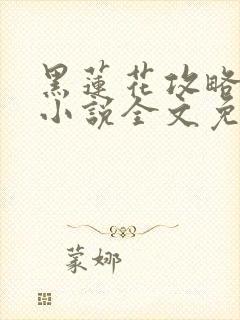 黑蓮花攻略
小說全文免
蒙娜